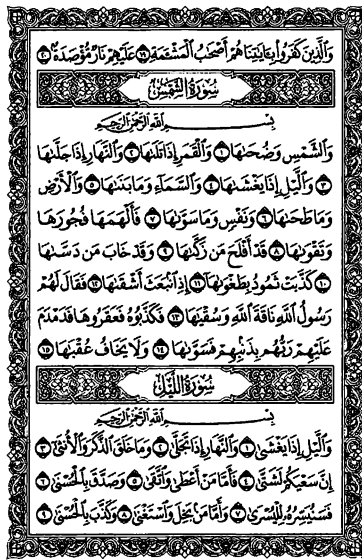 وَالَّذِينَ كَفَرُوا بِآيَاتِنَا هُمْ أَصْحَابُ الْمَشْأَمَةِ ١٩ عَلَيْهِمْ نَارٌ مُّؤْصَدَةٌ ٢٠
سُورَةُ الشَّمْسِ
بِسْمِ اللَّهِ الرَّحْمَٰنِ الرَّحِيمِ
وَالشَّمْسِ وَضُحَىٰهَا ١ وَالْقَمَرِ إِذَا تَلَىٰهَا ٢ وَالنَّهَارِ إِذَا جَلَّىٰهَا
٣ وَاللَّيْلِ إِذَا يَغْشَىٰهَا ٤ وَالسَّمَاءِ وَمَا بَنَىٰهَا ٥ وَالْأَرْضِ
وَمَا طَحَىٰهَا ٦ وَنَفْسٍ وَمَا سَوَّىٰهَا ٧ فَأَلْهَمَهَا فُجُورَهَا
وَتَقْوَىٰهَا ٨ قَدْ أَفْلَحَ مَن زَكَّىٰهَا ٩ وَقَدْ خَابَ مَن دَسَّىٰهَا
١٠ كَذَّبَتْ ثَمُودُ بِطَغْوَىٰهَا ١١ إِذِ انبَعَثَ أَشْقَىٰهَا ١٢ فَقَالَ لَهُمْ
رَسُولُ اللَّهِ نَاقَةَ اللَّهِ وَسُقْيَٰهَا ١٣ فَكَذَّبُوهُ فَعَقَرُوهَا فَدَمْدَمَ
عَلَيْهِمْ رَبُّهُم بِذَنبِهِمْ فَسَوَّىٰهَا ١٤ وَلَا يَخَافُ عُقْبَٰهَا ١٥
سُورَةُ اللَّيْلِ
بِسْمِ اللَّهِ الرَّحْمَٰنِ الرَّحِيمِ
وَاللَّيْلِ إِذَا يَغْشَىٰ ١ وَالنَّهَارِ إِذَا تَجَلَّىٰ ٢ وَمَا خَلَقَ الذَّكَرَ وَالْأُنثَىٰ ٣
إِنَّ سَعْيَكُمْ لَشَتَّىٰ ٤ فَأَمَّا مَنْ أَعْطَىٰ وَاتَّقَىٰ ٥ وَصَدَّقَ بِالْحُسْنَىٰ ٦
فَسَنُيَسِّرُهُ لِلْيُسْرَىٰ ٧ وَأَمَّا مَن بَخِلَ وَاسْتَغْنَىٰ ٨ وَكَذَّبَ بِالْحُسْنَىٰ ٩